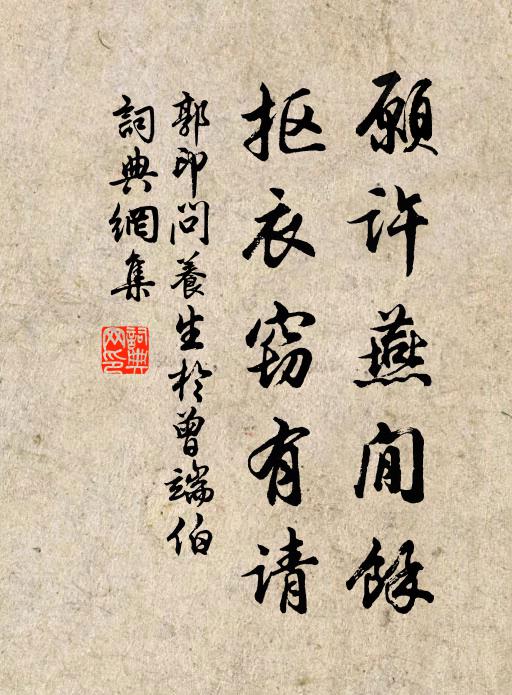 願许燕閒餘
抠衣窃有请
郭印问養生於曾端伯
詞典網集
詞典网印